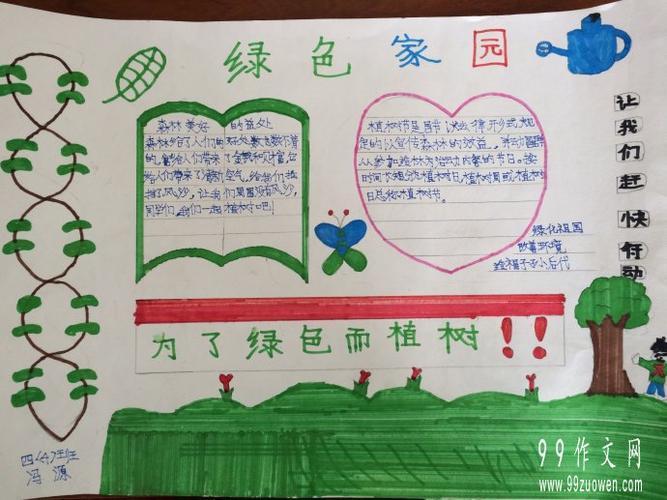 绿色家园
森林美好的益处
森林给了人们的好处数也数不清
的,它给人们带来了
给人们带来了新鲜空气,给我们
挡了风沙,让我们
同学们,我们一起植树吧!
植树节是国家以法律形式规
定的以宣传森林的效益,并动员群
众参加造林为活动内容的节日。按
时间长短分植树日,植树周或植树
总称植树节。
绿化祖国
改善环境
造福子孙后代
让我们赶快行动
为了绿色而植树!!
四(4)班
冯源
99作文网
www.99zuowen.com